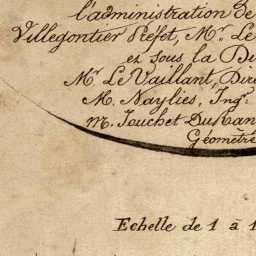 l'administration de
Villegontier Préfet, Mr. Le
et sous la Di
Mr. Le Vaillant, Dir
M. Naylies, Ingr.
M. Jouchet DusRan
Géomètre
Echelle de 1 à 1